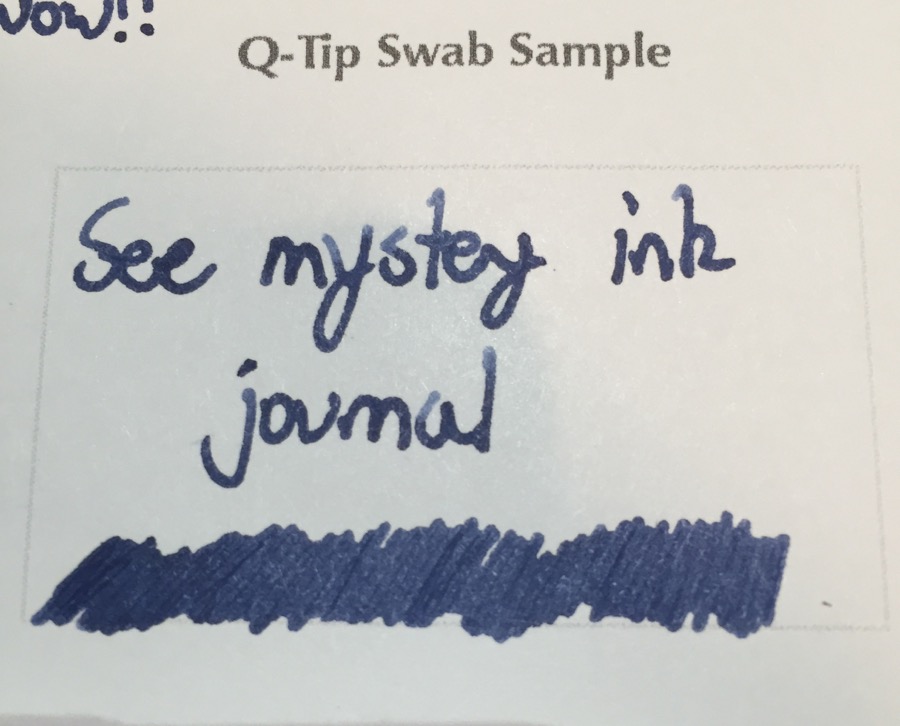 Wow!!
Q-Tip Swab Sample
See mystery ink
journal